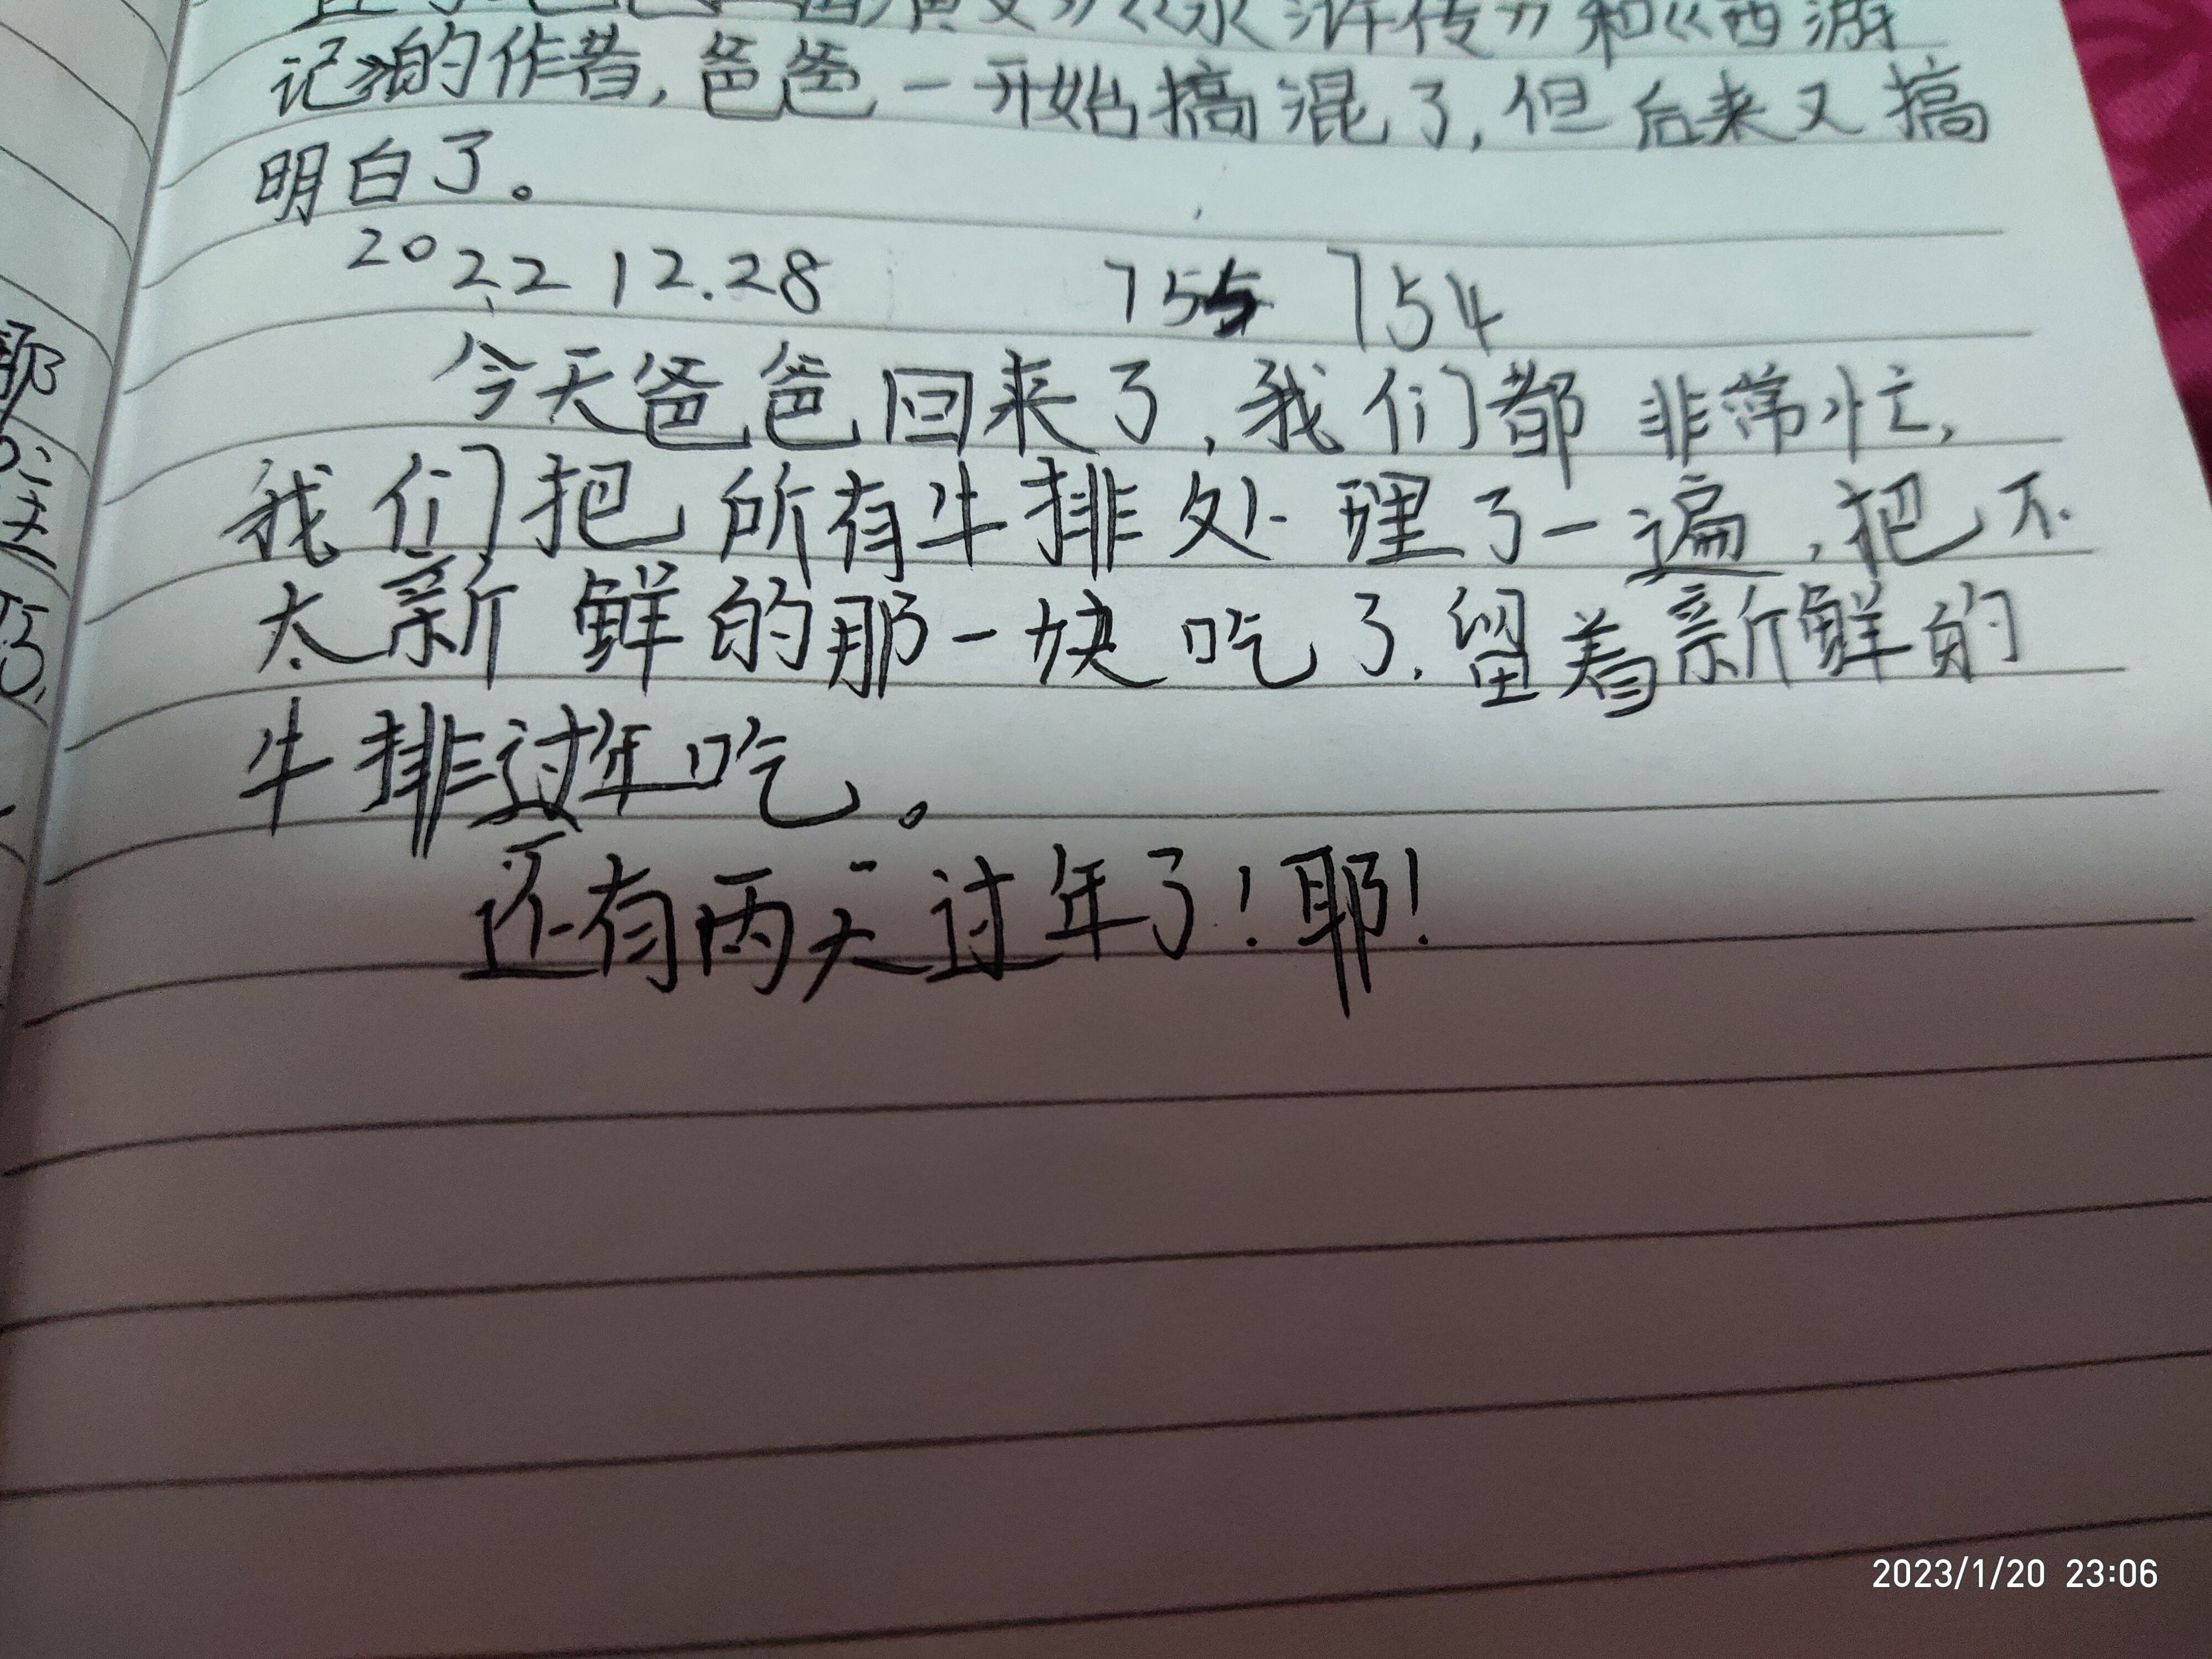 演义》《水浒传》和《西游
记》的作者,爸爸一开始搞混了,但后来又搞
明白了。
2022 12.28 755 754
今天爸爸回来了,我们都非常忙,
我们把所有牛排处理了一遍,把不
太新鲜的那一块吃了.留着新鲜的
牛排过年吃。
还有两天过年了!耶!
2023/1/20 23:06